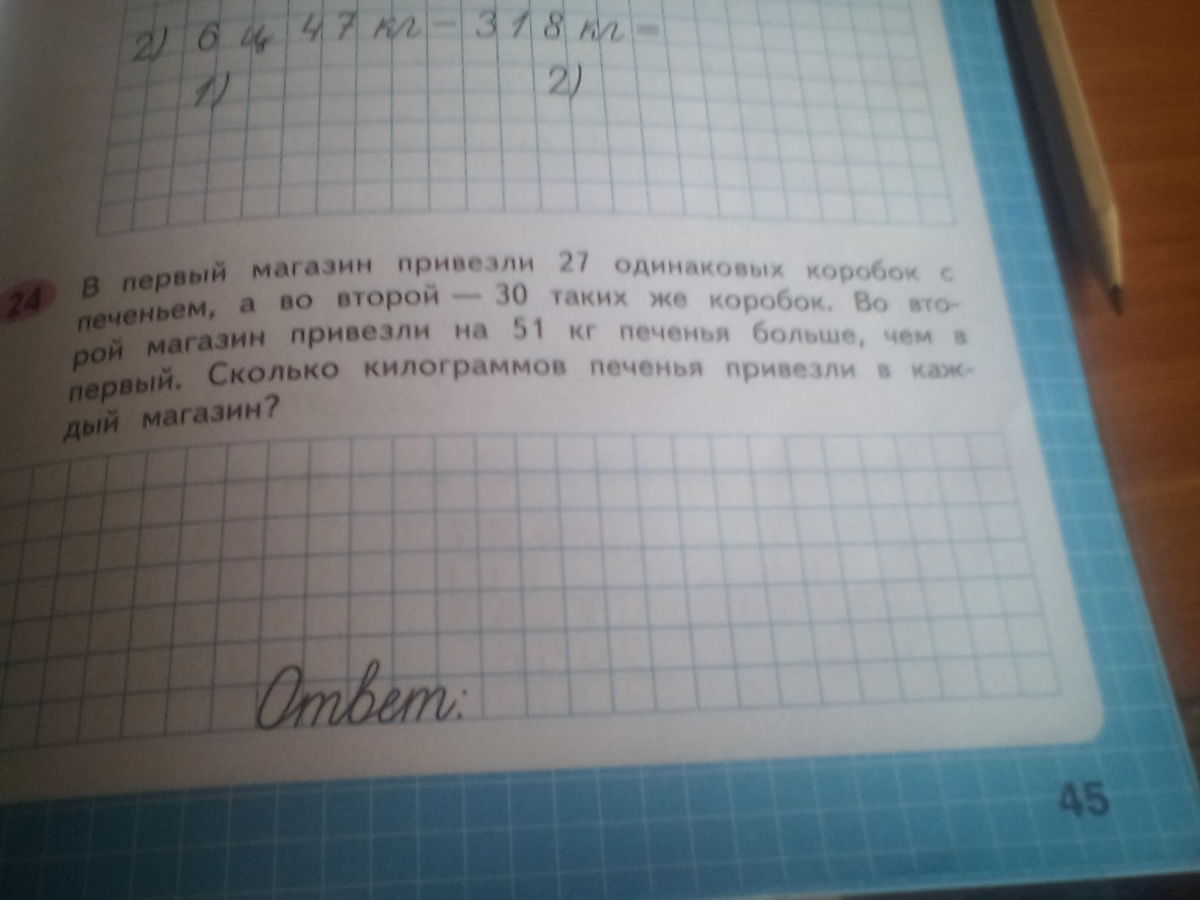 2) 6 ц 47 кг − 318 кг =
1) 2)
24 В первый магазин привезли 27 одинаковых коробок с
печеньем, а во второй — 30 таких же коробок. Во вто-
рой магазин привезли на 51 кг печенья больше, чем в
первый. Сколько килограммов печенья привезли в каж-
дый магазин?
Ответ:
45